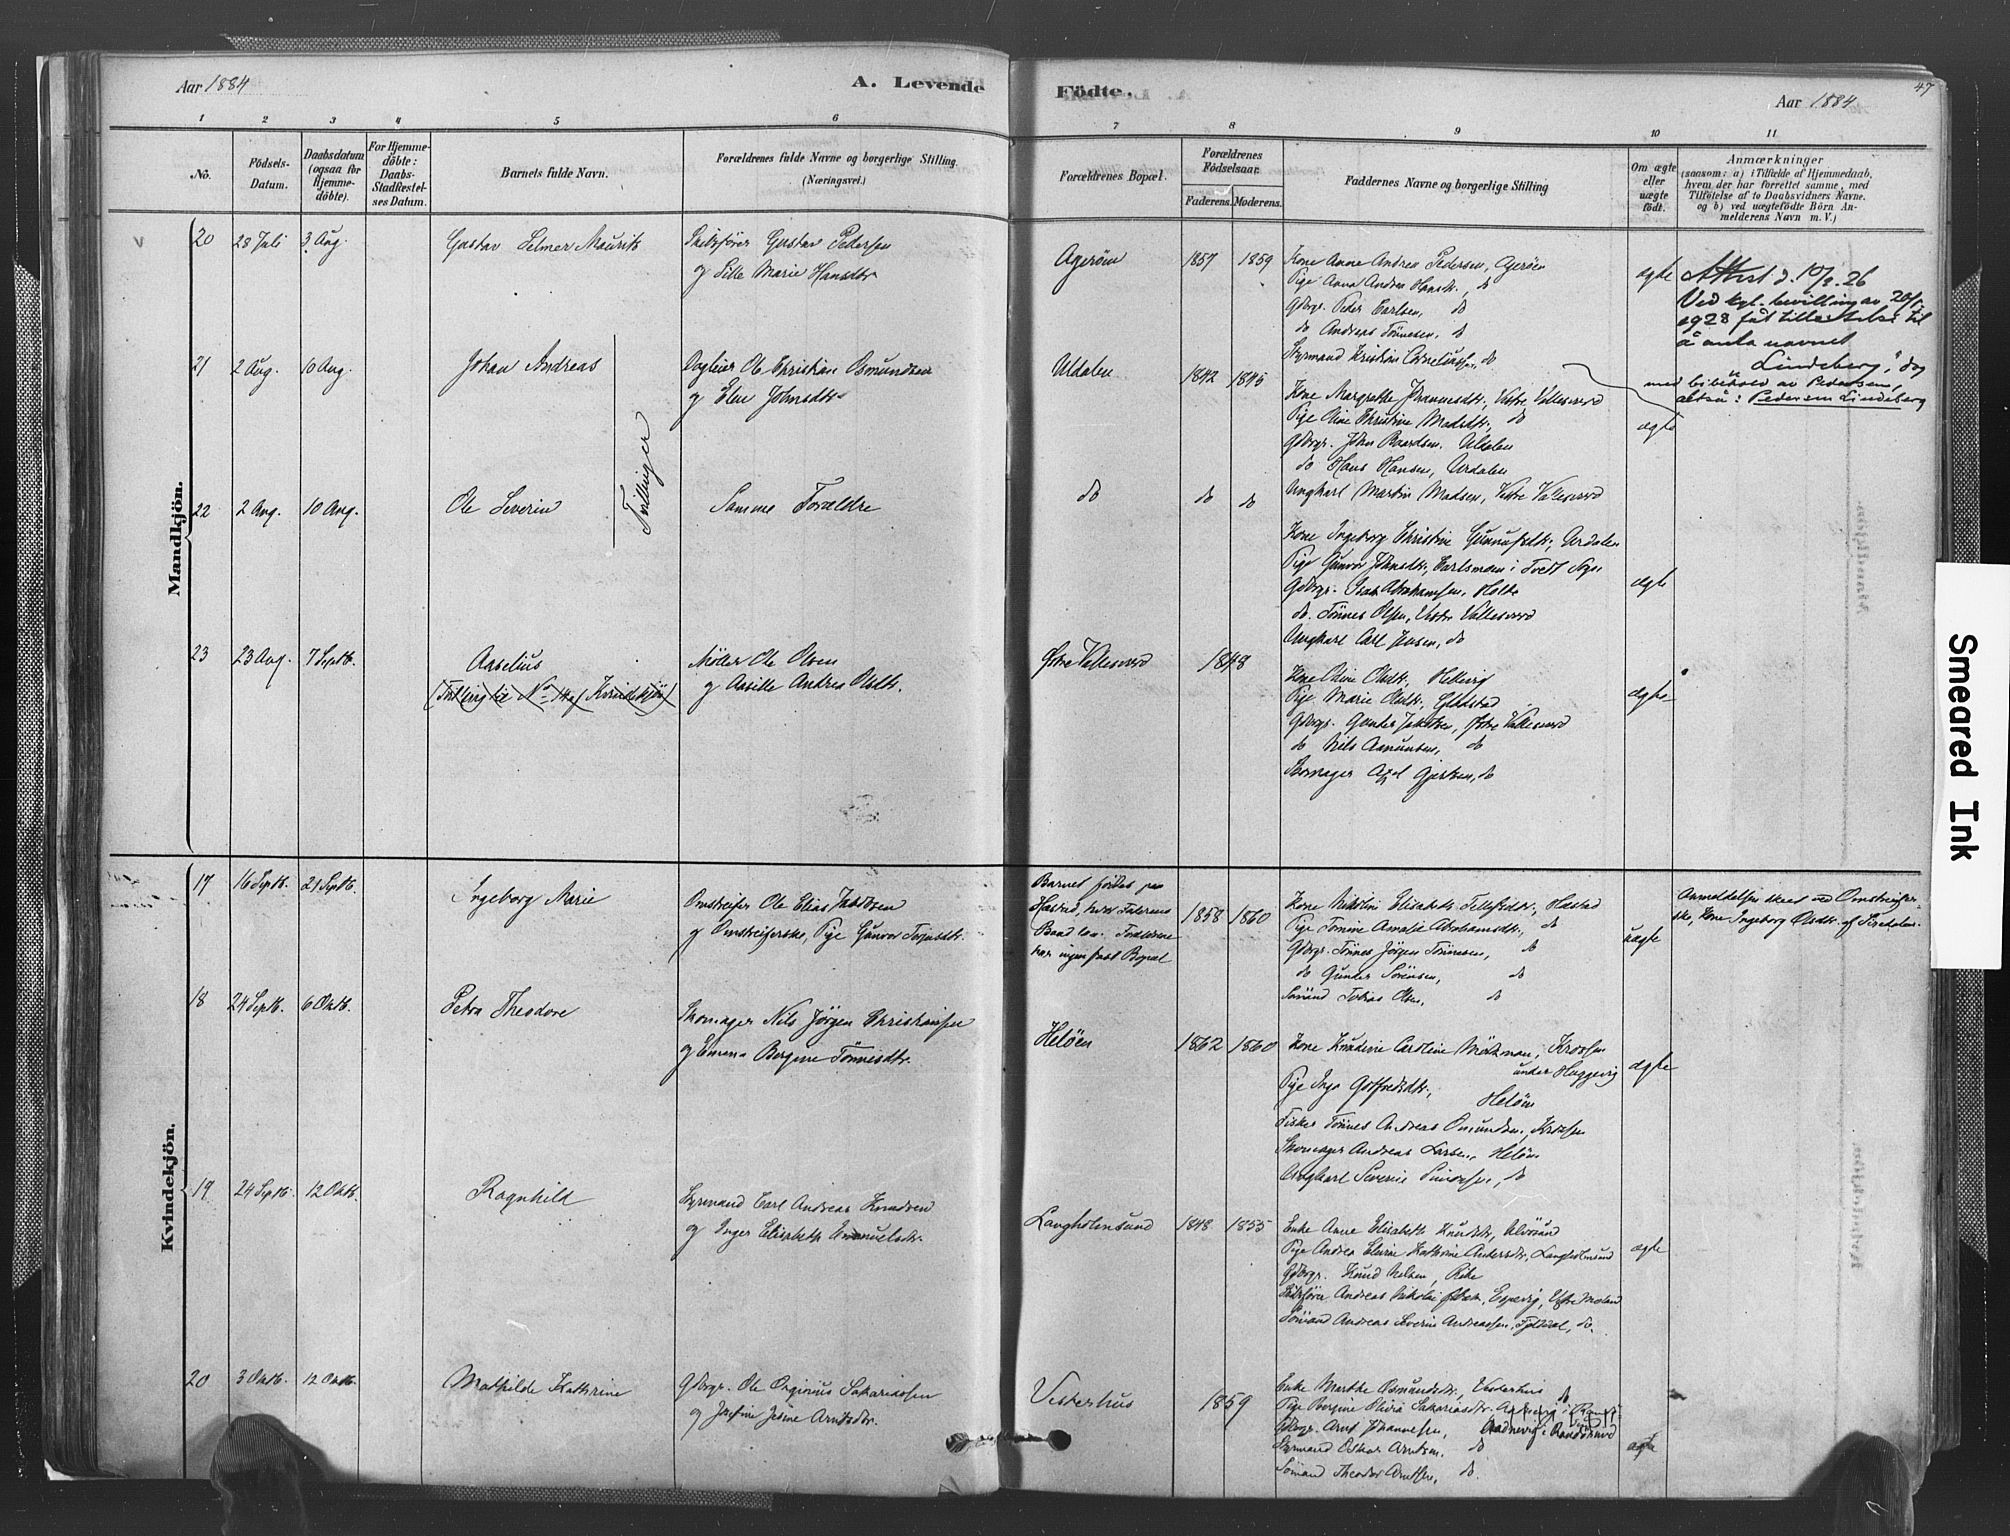 Aar 1884
A. Levende
Födte.
Aar 1884
47
1 2 3 4 5 6 7 8 9 10 11
No.
Födsels-
Datum.
Daabsdatum
(ogsaa for
Hjemme-
döbte).
For Hjemme-
döbte:
Daabs-
Stadfæstel-
ses Datum.
Barnets fulde Navn.
Forældrenes fulde Navne og borgerlige Stilling.
(Næringsvei.)
Forældrenes Bopæl.
Forældrenes
Födselsaar.
Faderens. Moderens.
Faddernes Navne og borgerlige Stilling
Om ægte
eller
uægte
födt.
Anmærkninger
(saasom: a) i Tilfælde af Hjemmedaab,
hvem der har forrettet samme, med
Tilföielse af to Daabsvidners Navne.
og b) ved uægtefödte Börn An-
melderens Navn m. V.)
Mandkjön.
20 28 Juli 3 Aug. Gustav Selmer Maurits
Skibsfører Gustav Pedersen
og Sille Marie Hansdtr
Agerøen 1857 1859
Kone Anne Andrea Pedersen, Agerøen
Pige Anna Andrea Hansdtr., do
Gdbrgr. Peder Carlsen, do
do Andreas Tönnesen, do
Styrmand Kristian Corneliusen, do
ægte
Attest d. 10/2.26
Ved kgl. bevilling av 20/1
1928 fåt tillatelse til
å anta navnet
"Lindeberg", dog
med bibehold av Pedersen,
altså: Pedersen Lindeberg
21 2 Aug. 10 Aug. Johan Andreas
Tvillinger
Dagleier Ole Christian Osmundsen
og Elen Johnsdtr
Urdalen 1842 1845
Kone Margrethe Johannesdtr, Vestre Vallesværd
Pige Oline Christine Madsdtr, do
Gdbrgr. John Baardsen, Urdalen
do Hans Hansen, Urdalen
Ungkarl Martin Madsen, Vestre Vallesværd
ægte
22 2 Aug. 10 Aug. Ole Severin
Samme Forældre
do do do
Kone Ingeborg Christine Gunnufsdtr, Urdalen
Pige Gunvor Johnsdtr, Carlsmoen i Tvedt Sogn
Gdbrgr. Isak Abrahamsen, Holte
do. Tönnes Olsen, Vestre Vallesværd
Ungkarl Carl Jensen, do
ægte
23 23 Aug. 7 Septb. Aaselius
(Tvilling til No 17 af Kvindekjön)
Møller Ole Olsen
og Aasille Andrea Olsdtr.
Østre Vallesværd 1848
Kone Oline Olsdtr, Hellevig
Pige Marie Olsdtr, Gladstad
Gdbrgr. Gunder Jakobsen, Østre Vallesværd
do Nils Aanunsen, do
Skomager Axel Gjertsen, do
ægte
Kvindekjön.
17 16 Septb. 21 Septb. Ingeborg Marie
Omstreifer Ole Elias Jakobsen
og Omstreiferske, Pige Gunvor Terjesdtr.
Barnet fødtes paa
Hæstad, hvor Faderens
Baad laa. Forældrene
har ingen fast Bopæl
1858 1860
Kone Nikoline Elisabeth Tellefsdtr, Hæstad
Pige Tomine Amalie Abrahamsdtr, do
Gdbrgr. Tönnes Jörgen Tönnesen, do
do Gunder Sörensen, do
Sømand Tobias Olsen, do
uægte
Anmeldelsen skeet ved Omstreifer-
ske, Kone Ingeborg Olsdtr. af Siredalen.
18 24 Septb. 6 Oktb. Petra Theodore
Skomager Nils Jörgen Christiansen
og Emma Bergine Tönnesdtr.
Heløen 1862 1860
Kone Caroline Mörkman, Krossen
under Haggevig
Pige Inga Gotfredsdtr, Heløen
Fisker Tönnes Andreas Osmundsen, Krossen
Skomager Andreas Larsen, Heløen
Ungkarl Severin Simonsen, do
ægte
19 24 Septb. 12 Oktb. Ragnhild
Styrmand Carl Andreas Knudsen
og Inger Elisabeth Emanuelsdtr.
Langholmsund 1848 1855
Enke Anne Elisabeth Knudsdtr, Ulvøsund
Pige Andrea Elvine Kathrine Andersdtr, Langholmsund
Gdbrgr. Knud Nelsen, Røke
Skibsfører Andreas Nikolai Olsen, Espevig, Vestre Moland
Sømand Andreas Severin Andreassen, Fjeldal, do.
ægte
20 3 Oktb. 12 Oktb. Mathilde Kathrine
Gdbrgr. Ole Orginius Sakariassen
og Josefine Jesine Arntsdtr.
Vesterhus 1859
Enke Marthe Osmundsdtr, Vesterhus
Pige Bergine Olivia Sakariasdtr. do
Gdbrgr. Arnt Johannesen, Aadnevig i Randösund
Styrmand Oskar Arntsen, do
Sømand Theodor Arntsen, do.
ægte
Smeared Ink